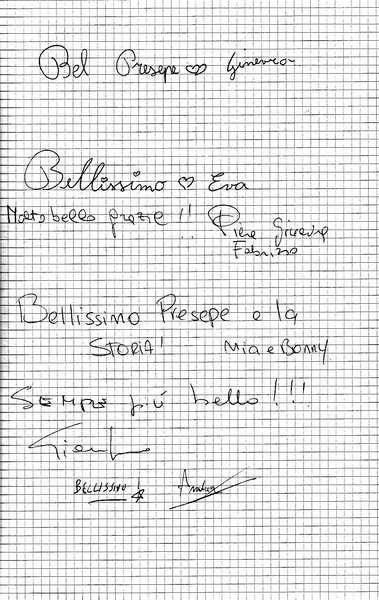 Bel Presepe ♡ Ginevra
Bellissimo ♡ Eva
Molto bello grazie !!
Fabrizio
Bellissimo Presepe e la
STORIA! Mia e Bonny
SEMPRE più bello!!!
BELLISSIMO!